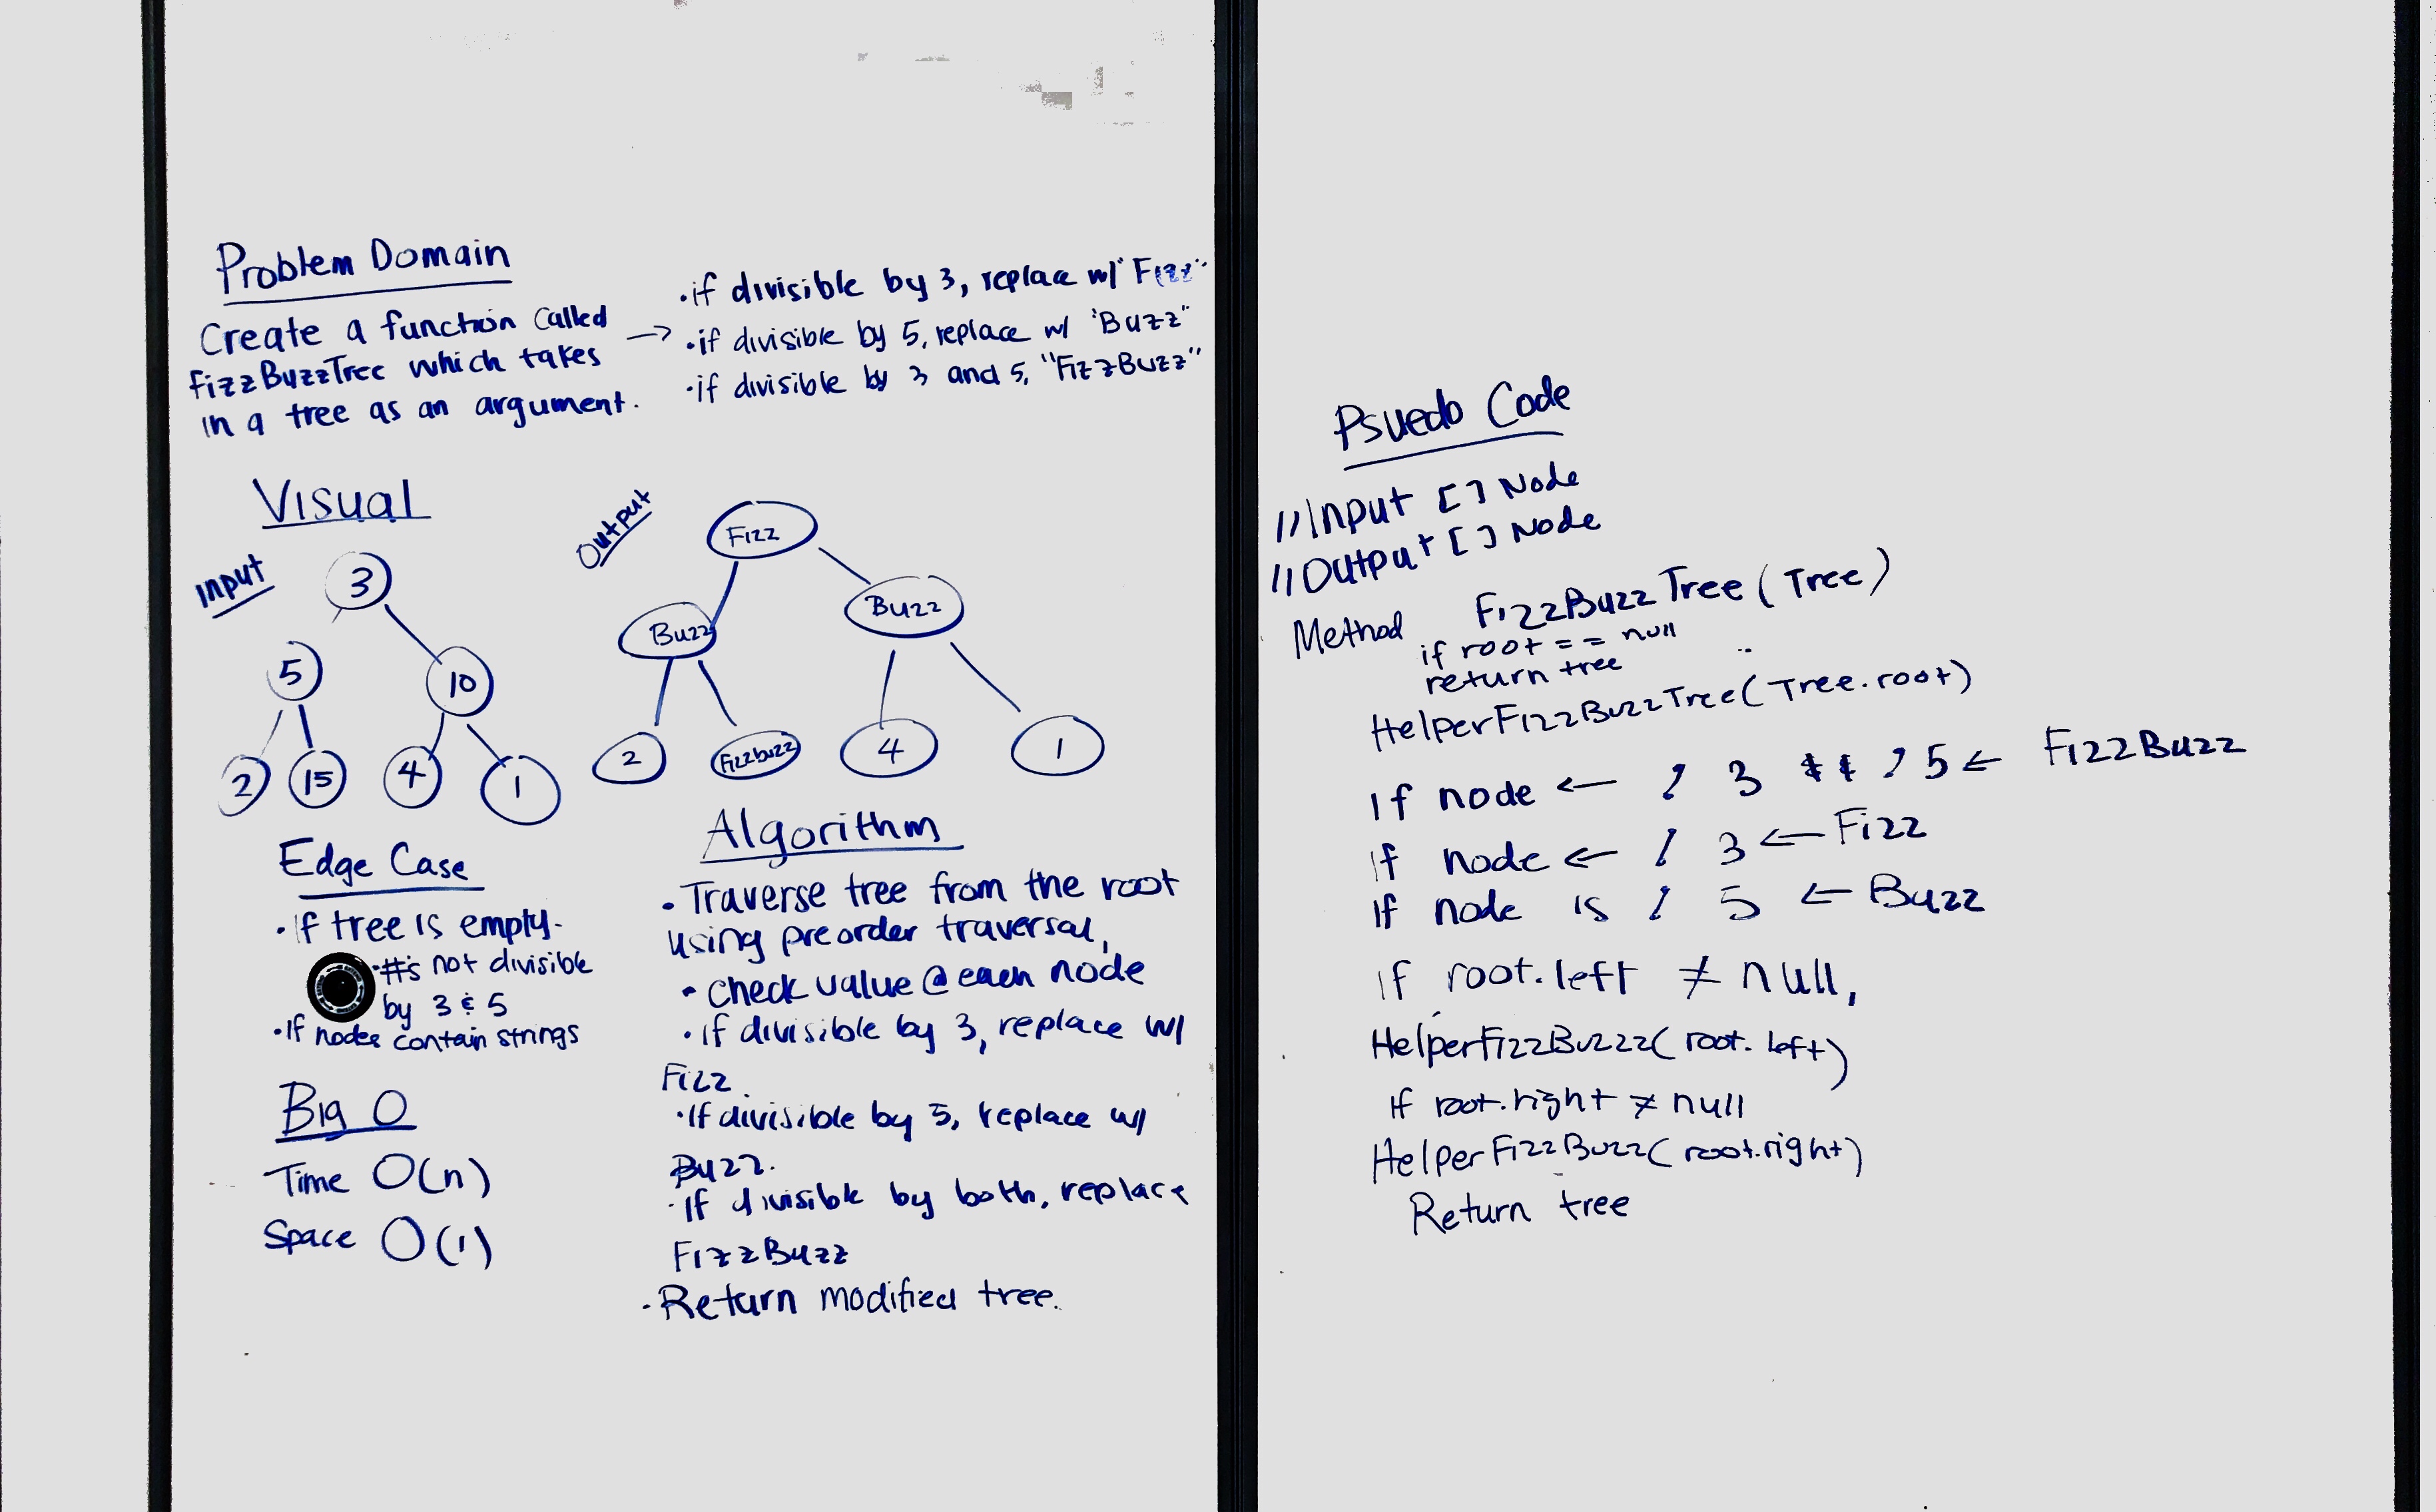 Problem Domain
Create a function called
FizzBuzzTree which takes
in a tree as an argument.
→ •if divisible by 3, replace w/ "Fizz"
•if divisible by 5, replace w/ "Buzz"
•if divisible by 3 and 5, "FizzBuzz"
Visual
Input
3
5
10
2
15
4
1
Output
Fizz
Buzz
Buzz
2
Fizzbuzz
4
1
Edge Case
•If tree is empty-
•#'s not divisible
by 3 & 5
•If nodes contain strings
Big O
Time O(n)
Space O(1)
Algorithm
•Traverse tree from the root
using preorder traversal,
•check value @ each node
•if divisible by 3, replace w/
Fizz
•If divisible by 5, replace w/
Buzz.
•If divisible by both, replace
FizzBuzz
•Return modified tree.
Psuedo Code
//Input [] Node
//Output [] Node
Method FizzBuzzTree(Tree)
if root == null
return tree
HelperFizzBuzzTree(Tree.root)
If node ← % 3 && % 5 ← FizzBuzz
If node ← % 3 ← Fizz
If node is % 5 ← Buzz
If root.left ≠ null,
HelperFizzBuzzz(root.left)
If root.right ≠ null
HelperFizzBuzz(root.right)
Return tree